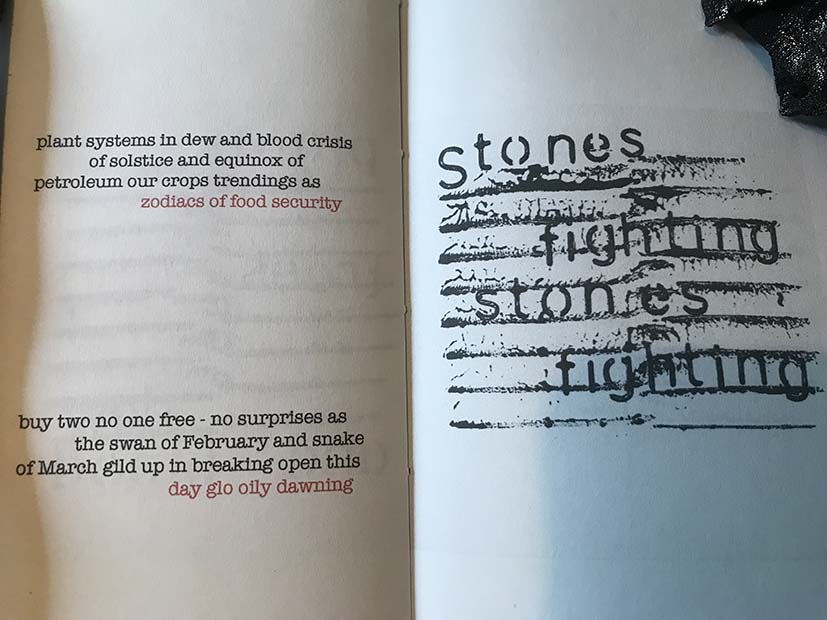 plant systems in dew and blood crisis
of solstice and equinox of
petroleum our crops trendings as
zodiacs of food security
buy two no one free - no surprises as
the swan of February and snake
of March gild up in breaking open this
day glo oily dawning
stones
fighting
stones
fighting